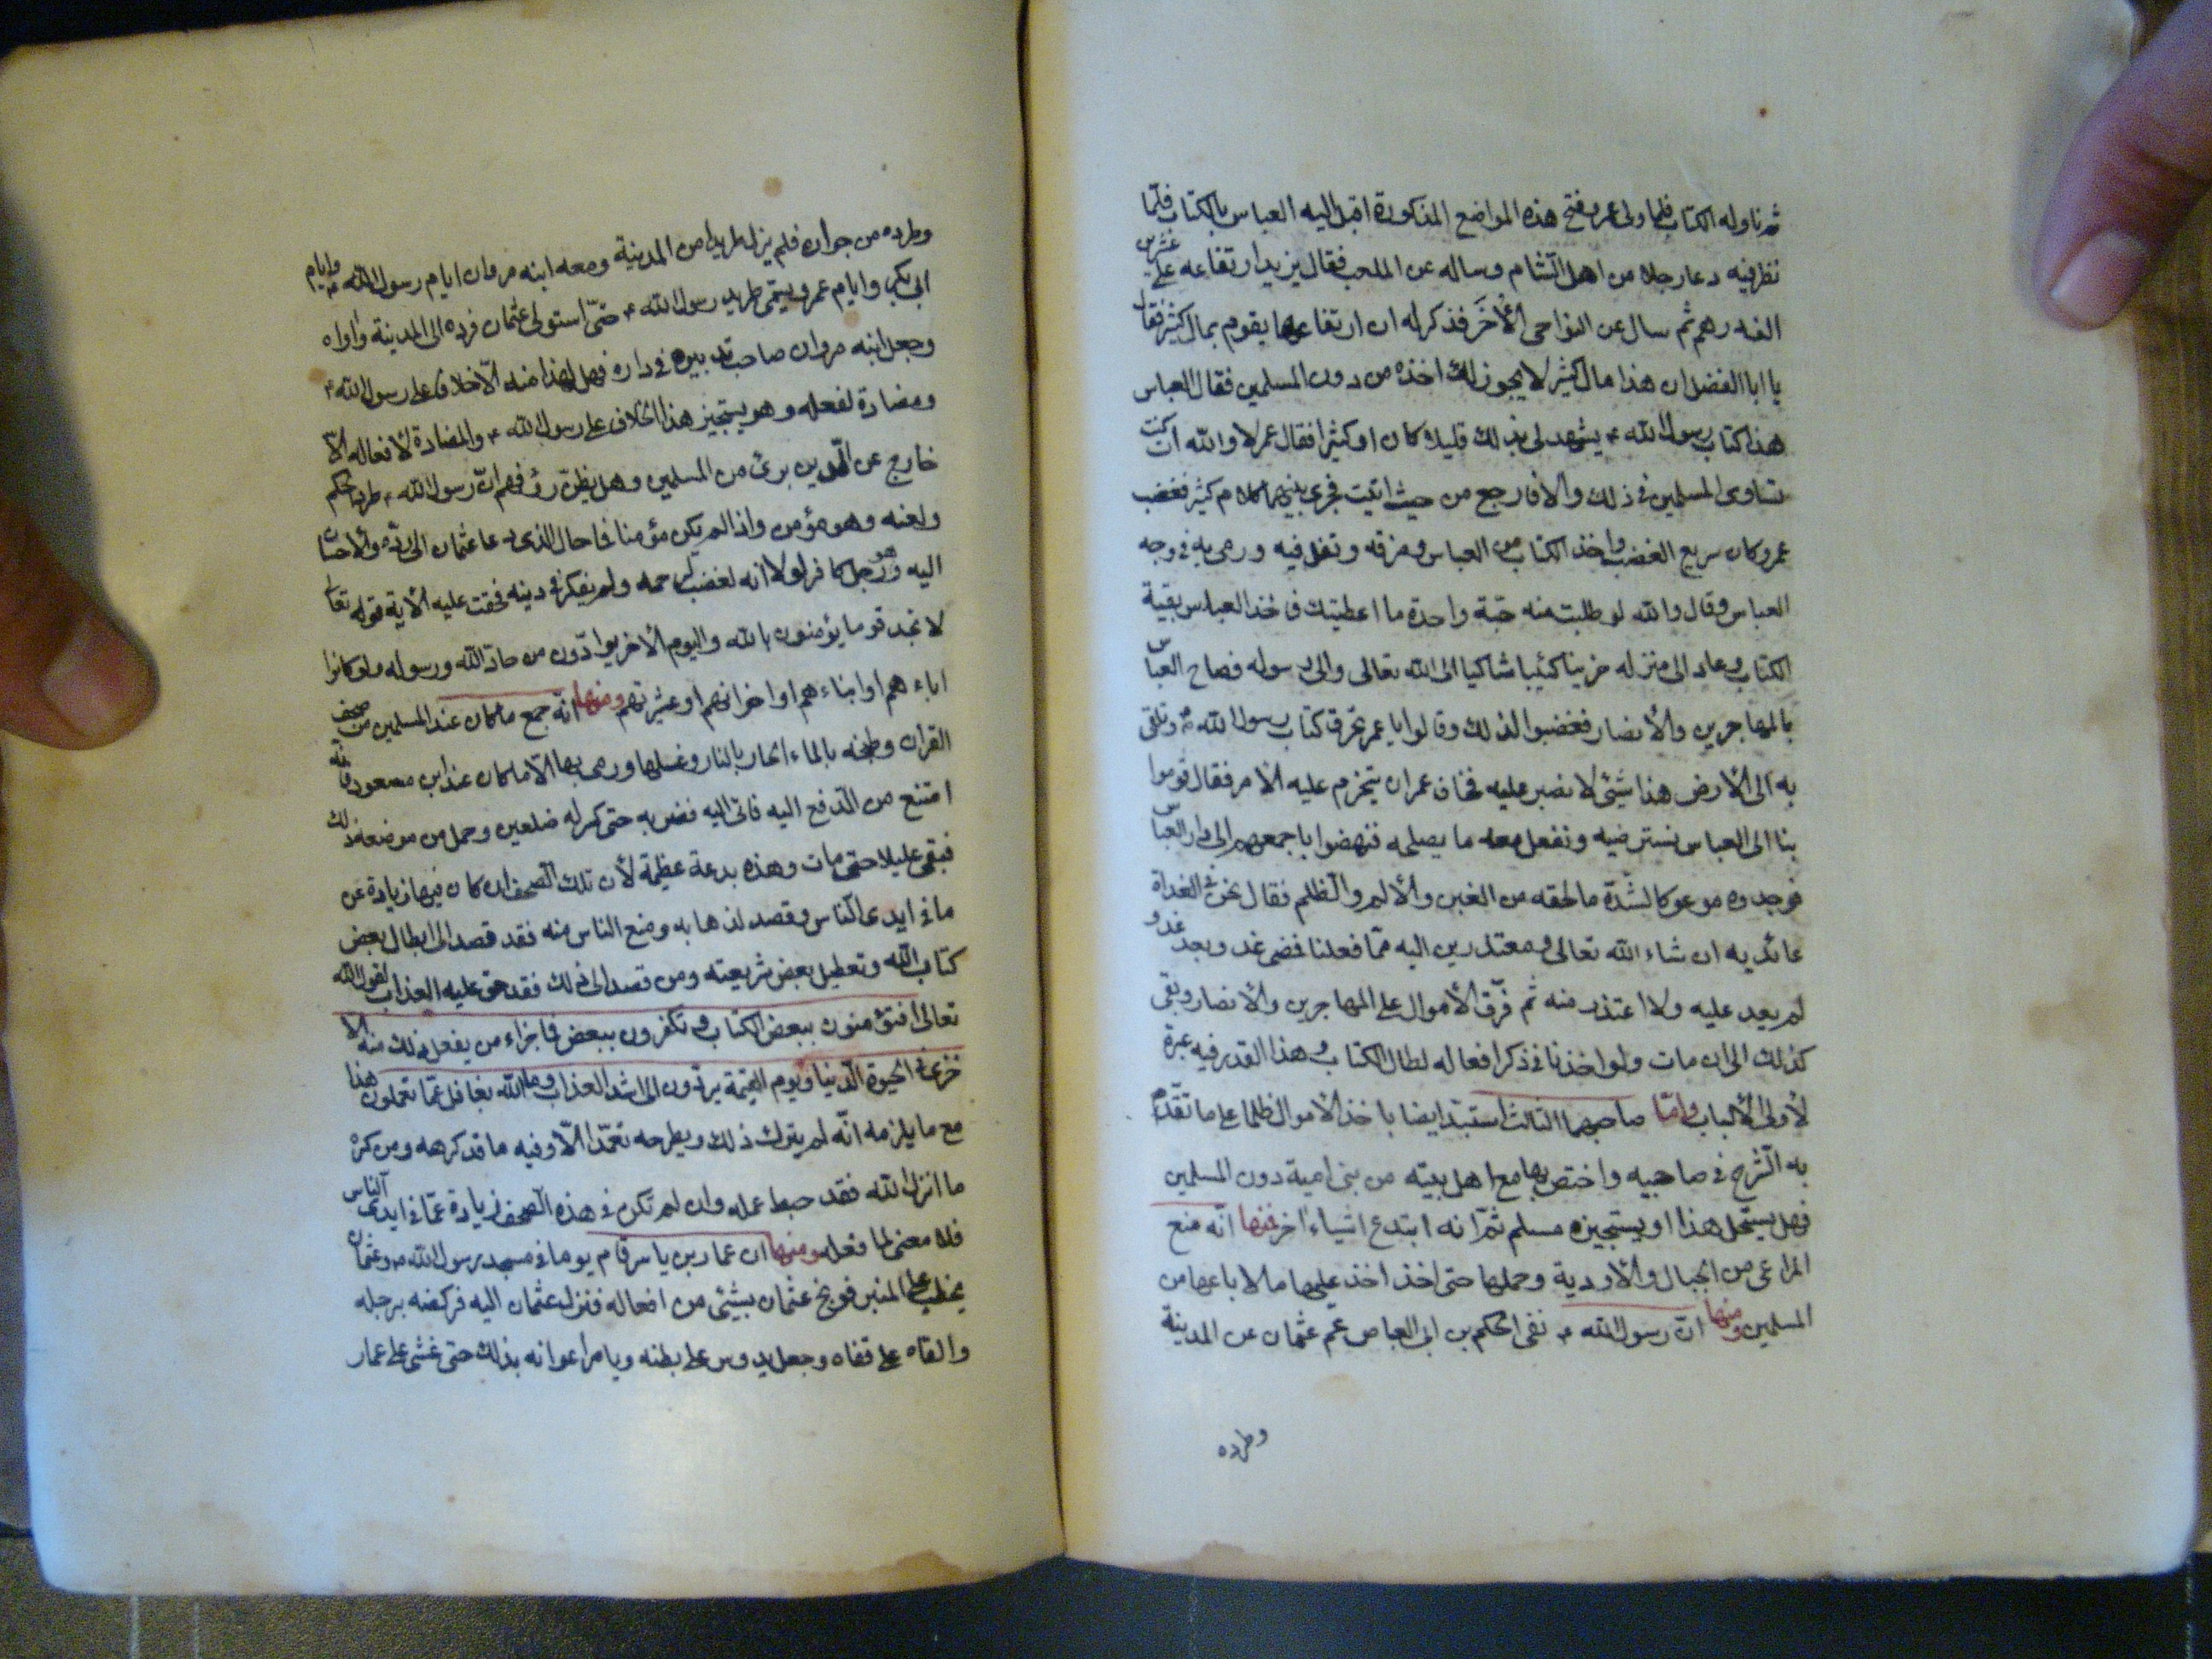 ثم ناوله الكتاب فلما ولى عمر وفتح هذه المواضع المذكورة اقبل اليه العباس بالكتاب فلمّا
نظر فيه دعا رجلا من اهل الشام وساله عن الملحب فقال يزيد ارتفاعه على عشرين
الف درهم ثم سال عن النواحى الأخَر فذكر له ان ارتفاعها يقوم بمال كثير فقال
يا ابا الفضل ان هذا مال كثير لا يجوز لك اخذه من دون المسلمين فقال العباس
هذا كتاب رسول الله يشهد لى بذلك قليلا كان او كثيرا فقال عمر لا والله ان كنت
تساوى المسلمين فى ذلك والا فارجع من حيث اتيت فجرى بينهما كلام كثير فغضب
عمر وكان سريع الغضب واخذ الكتاب من العباس ومزقه وتفل فيه ورمى به فى وجه
العباس وقال والله لو طلبت منه حبّة واحدة ما اعطيتك فاخذ العباس بقية
الكتاب وعاد الى منزله حزينا كئيبا شاكيا الى الله تعالى والى رسوله فصاح العباس
بالمهاجرين والأنصار فغضبوا لذلك وقالوا يا عمر تخرق كتاب رسول الله وتلقى
به الى الأرض هذا شيئ لا نصبر عليه فخاف عمر ان يتخرم عليه الأمر فقال قوموا
بنا الى العباس نسترضيه ونفعل معه ما يصلحه فنهضوا باجمعهم الى دار العباس
فوجدوه موعوكا لشدّة ما لحقه من الغبن والألم والظلم فقال نحن فى الغداة
عائديه ان شاء الله تعالى ومعتذرين اليه ممّا فعلنا فمضى غد وبعد غد و
لم يعد عليه ولا اعتذر منه ثم فرّق الأموال على المهاجرين والأنصار وبقى
كذلك الى ان مات ولو اخذنا فى ذكر افعاله لطال الكتاب وهذا القدر فيه عبرة
لأولى الألباب وامّا صاحبهما الثالث استبدّ ايضا باخذ الأموال ظلما على ما تقدّم
به الشرح فى صاحبيه واختص بها مع اهل بيته من بنى امية دون المسلمين
فهل يستحل هذا او يستجيزه مسلم ثمّ انه ابتدع اشياء اخر فمنها انّه منع
المراعى من الجبال والأودية وحملها حتى اخذ اخذ عليها مالا باعها من
المسلمين ومنها انّ رسول الله نفى الحكم بن ابى العاص عم عثمان عن المدينة
وطرده
وطرده من جواره فلم يزل طريدا من المدينة ومعه ابنه مروان ايام رسول الله وايام
ابى بكر وايام عمر ويسمّى طريد رسول الله حتّى استولى عثمان فرده الى المدينة وآواه
وجعل ابنه مروان صاحب تدبيره فى داره فهل لهذا منه الّا خلاف على رسول الله
ومضادة لفعله وهو يستجيز هذا الخلاف على رسول الله والمضادة لأفعاله الّا
خارج عن الدين برئ من المسلمين وهل يظنّ ذو فهم انّ رسول الله طرد الحكم
ولعنه وهو مؤمن واذا لم يكن مؤمنا فما حال الذى دعا عثمان الى ردّه والأحسان
اليه وهو رجل كافر لولا انه لغضب لرحمه ولم يفكر فى دينه فحقت عليه الأية قوله تعالى
لا تجد قوما يؤمنون بالله واليوم الأخر يوادّون من حادّ الله ورسوله ولو كانوا
اباءهم او ابناءهم او اخوانهم او عشيرتهم ومنها انّه جمع ما كان عند المسلمين من صحف
القران وطبخه بالماء الحار بالنار وغسلها ورمى بها الّا ما كان عند ابن مسعود فانّه
امتنع من الدفع اليه فاتى اليه فضربه حتى كسر له ضلعين وحمل من موضعه ذلك
فبقى عليلا حتى مات وهذه بدعة عظيمة لأن تلك الصحف ان كان فيها زيادة عن
ما فى ايدى الناس وقصد لذهابه ومنع الناس منه فقد قصد الى ابطال بعض
كتاب الله وتعطيل بعض شريعته ومن قصد الى ذلك فقد حق عليه العذاب لقول الله
تعالى افتؤمنون ببعض الكتاب وتكفرون ببعض فما جزاء من يفعل ذلك منكم الّا
خزى فى الحيوة الدنيا ويوم القيمة يردّون الى اشد العذاب وما الله بغافل عمّا تعملون هذا
مع ما يلزمه انّه لم يترك ذلك ويطرحه تعمّدا الّا وفيه ما قد كرهه ومن كره
ما انزل الله فقد حبط عمله وان لم تكن فى هذه الصحف زيادة عمّا فى ايدى الناس
فلا معنى لما فعل ومنها ان عمار بن ياسر قام يوما فى مسجد رسول الله وعثمان
يخطب على المنبر فوبخ عثمان بشيئ من افعاله فنزل عثمان اليه فركضه برجله
والقاه على قفاه وجعل يدوس على بطنه ويامر اعوانه بذلك حتى غشى على عمار